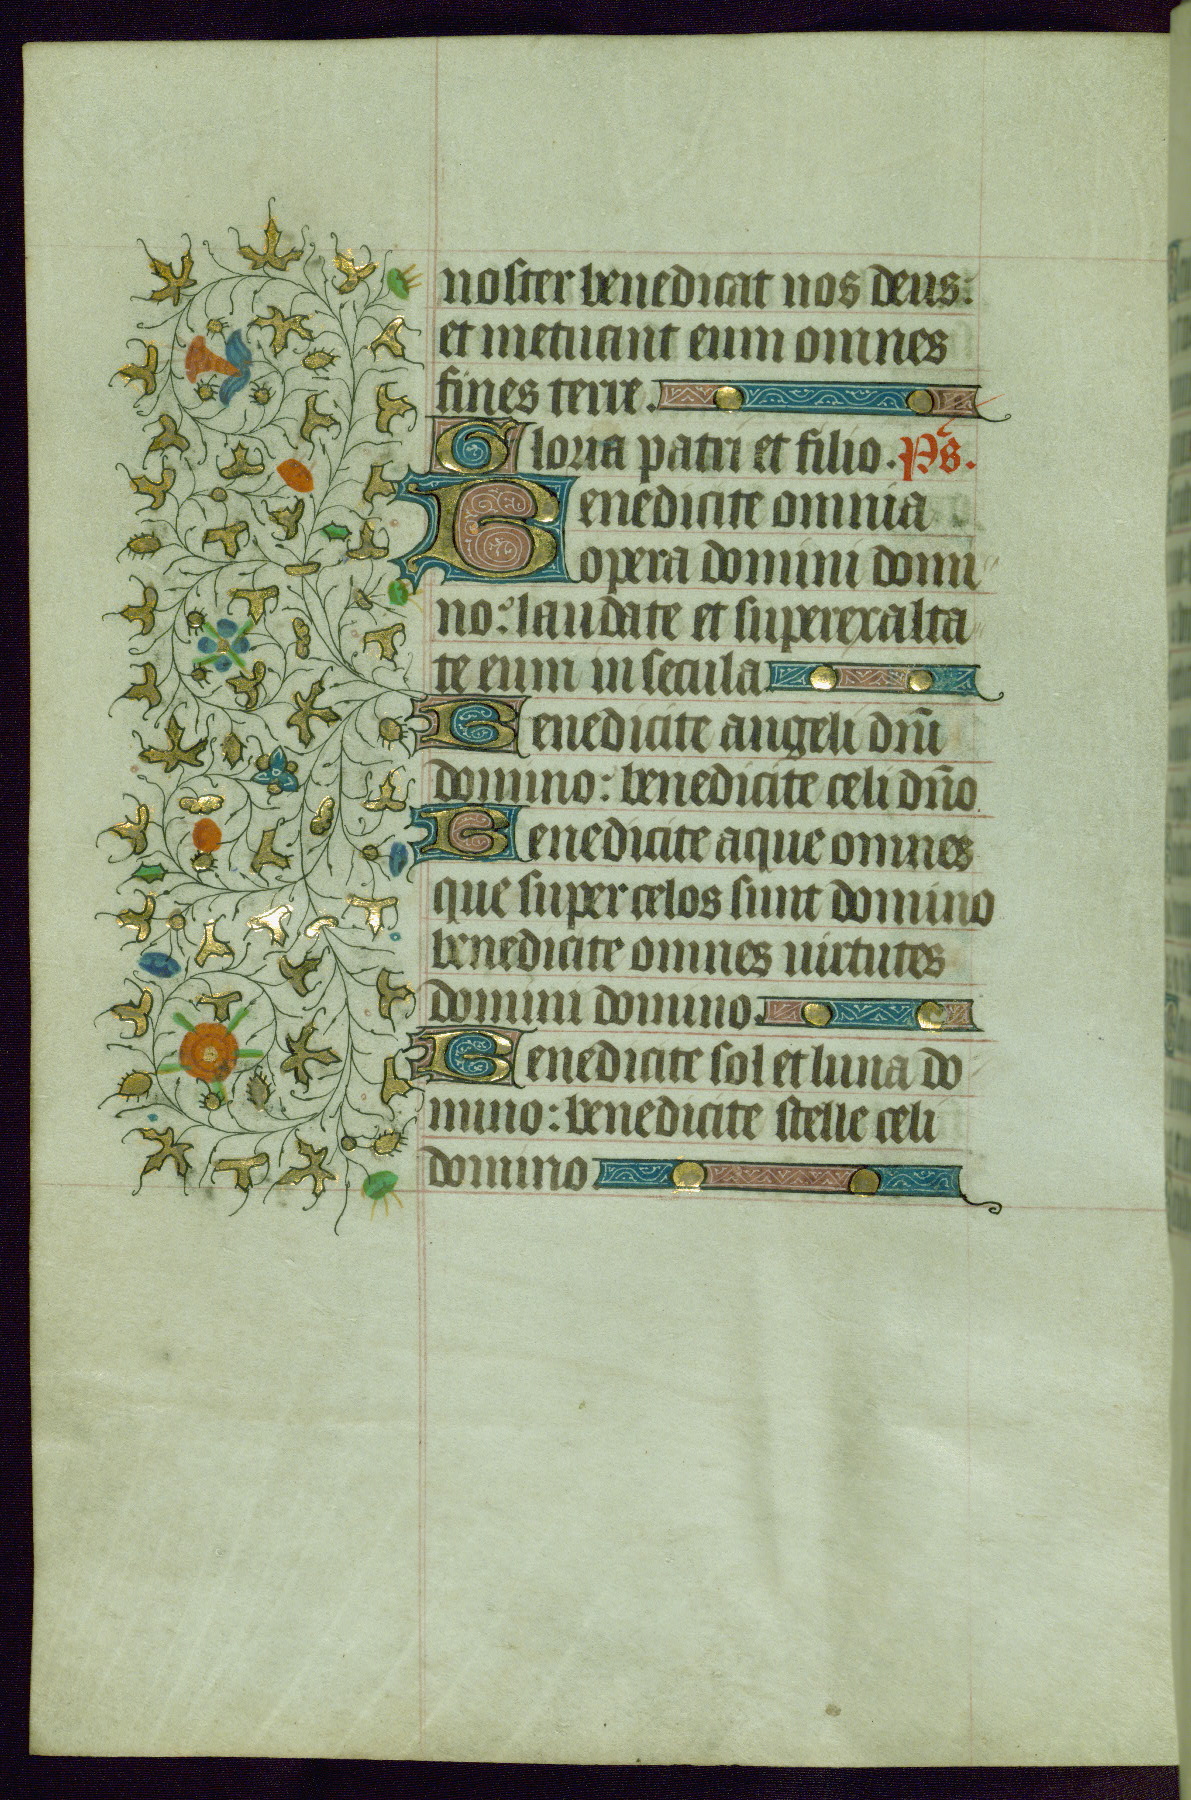 noster benedicat nos deus:
et metuant eum omnes
fines terre.
Gloria patri et filio. Ps.
Benedicite omnia
opera domini domi
no: laudate et superexalta
te eum in secula
Benedicite angeli dn̄i
domino: benedicite celi dn̄o
Benedicite aque omnes
que super celos sunt domino
benedicite omnes uirtutes
domini domino.
Benedicite sol et luna do
mino: benedicite stelle celi
domino